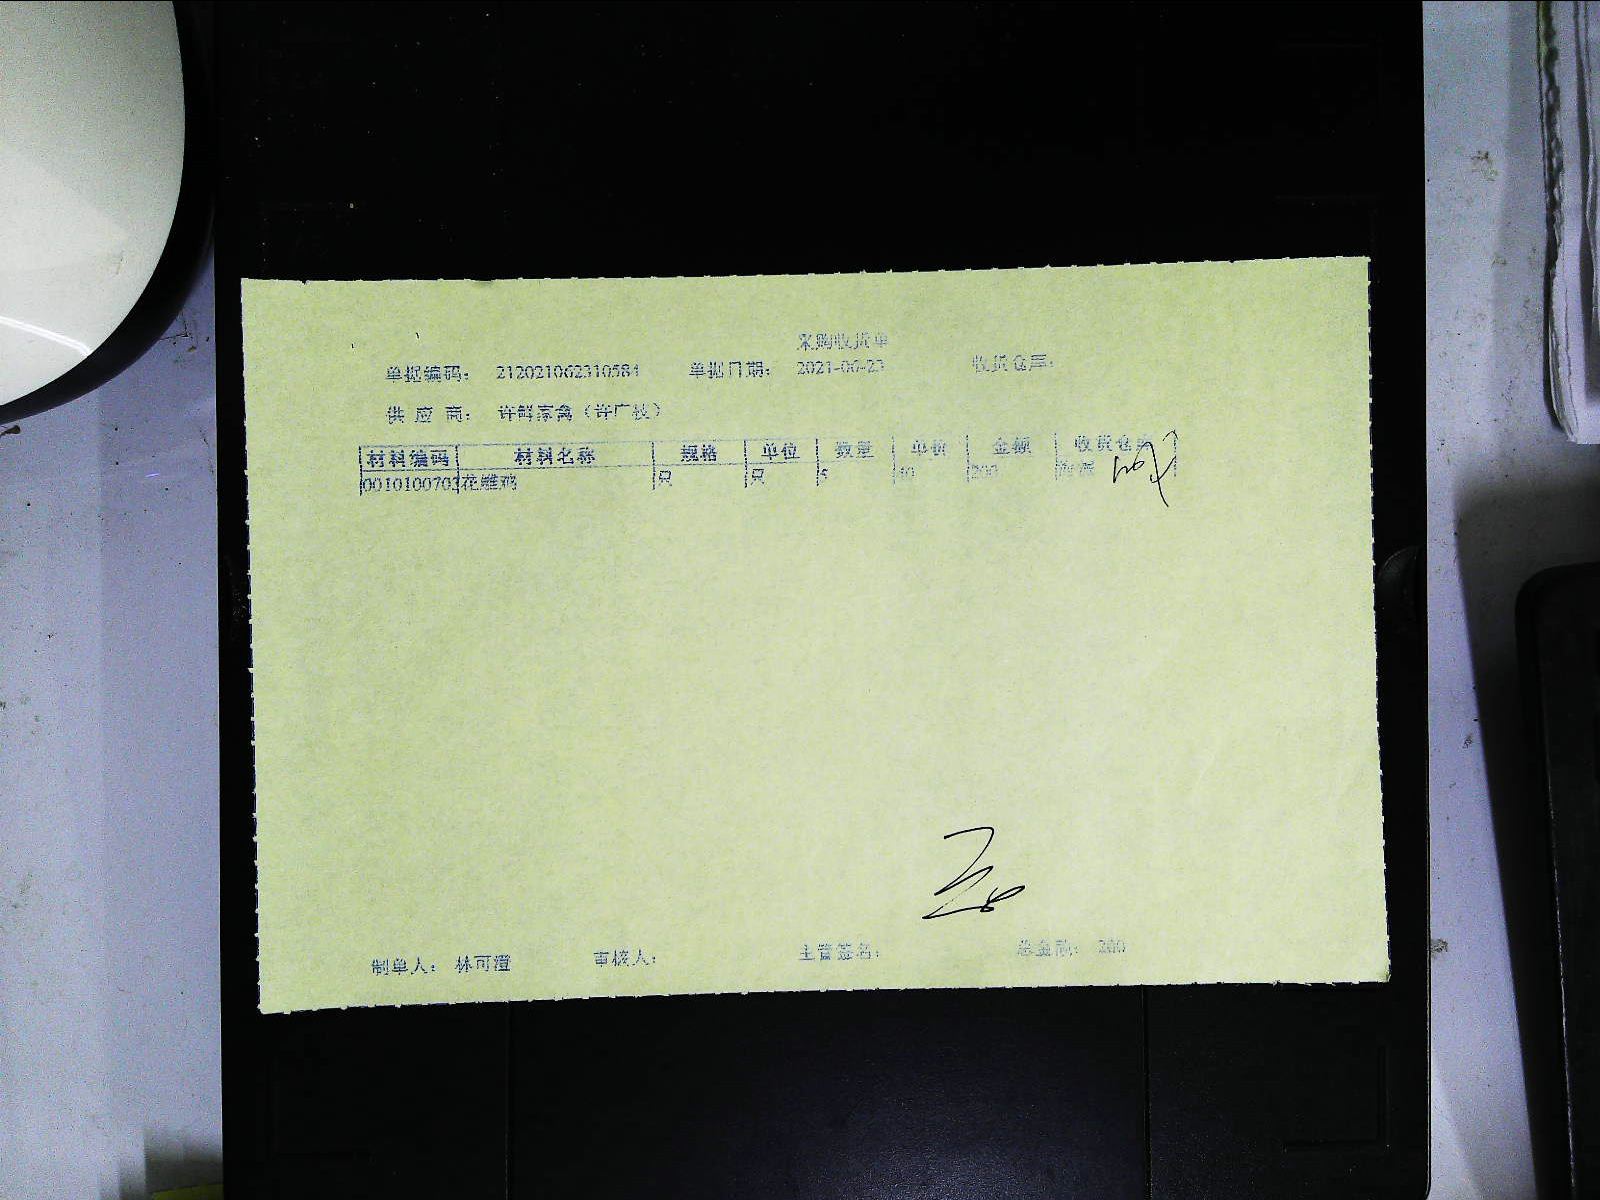 采购收货单
单据编码: 212021062310584 单据日期: 2021-06-23 收货仓库:
供 应 商: 许鲜家禽(许广枝)
材料编码 材料名称 规格 单位 数量 单价 金额 收货仓库
0010100702 花雕鸡 只 只 5 40 200
制单人: 林可澄 审核人: 主管签名: 总金额: 200